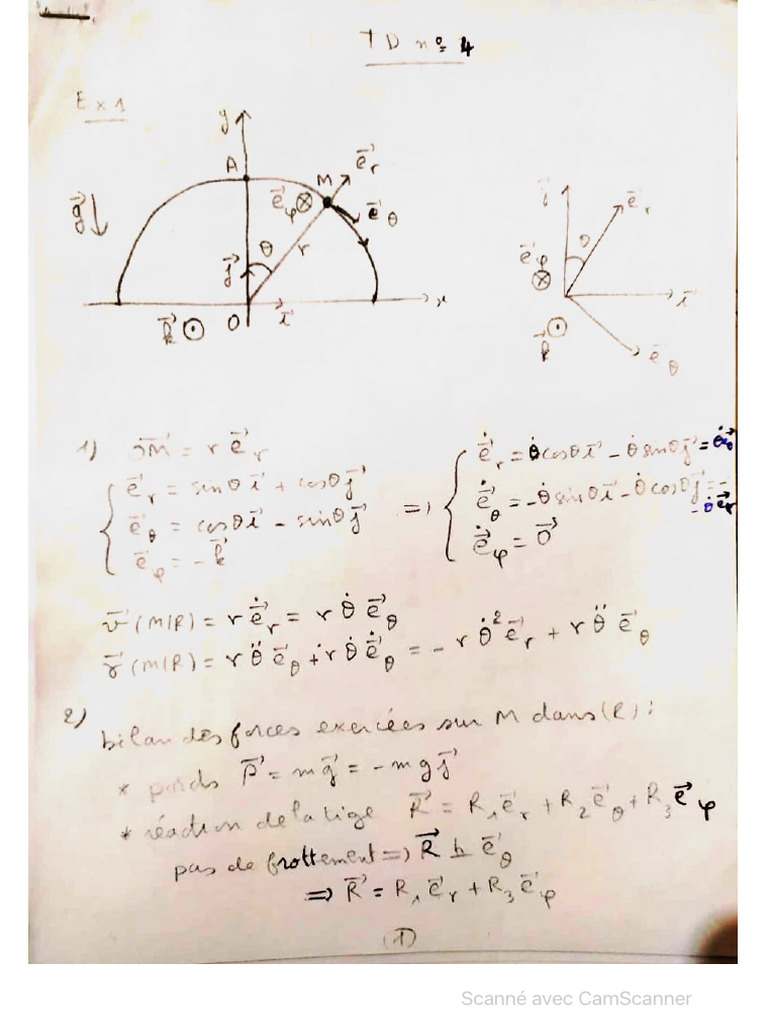 TD n° 4
Ex 1
y
A
M
e⃗r
e⃗φ ⊗
e⃗θ
g⃗ ↓
θ
r
j⃗
x
k⃗ ⊙
O
i⃗
j⃗
e⃗r
θ
e⃗φ
⊗
i⃗
⊙
k⃗
e⃗θ
1) OM⃗ = r e⃗r
{ e⃗r = sinθ i⃗ + cosθ j⃗
e⃗θ = cosθ i⃗ - sinθ j⃗
e⃗φ = - k⃗
=> { ė⃗r = θ̇ cosθ i⃗ - θ̇ sinθ j⃗ = θ̇ e⃗θ
ė⃗θ = -θ̇ sinθ i⃗ - θ̇ cosθ j⃗ = -
- θ̇ e⃗r
ė⃗φ = 0⃗
v⃗ (M/R) = r ė⃗r = r θ̇ e⃗θ
γ⃗ (M/R) = r θ̈ e⃗θ + r θ̇ ė⃗θ = - r θ̇² e⃗r + r θ̈ e⃗θ
2) bilan des forces exercées sur M dans (R) :
* poids P⃗ = m g⃗ = - m g j⃗
* réaction de la tige R⃗ = R₁ e⃗r + R₂ e⃗θ + R₃ e⃗φ
pas de frottement => R⃗ ⊥ e⃗θ
=> R⃗ = R₁ e⃗r + R₃ e⃗φ
(1)
Scanné avec CamScanner